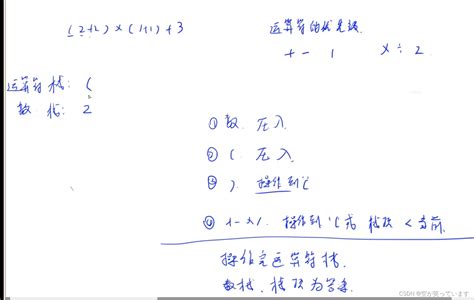 (2+2)×(1+1)+3
运算符的优先级
+ - 1 × ÷ 2
运算符栈: (
数 栈: 2
① 数 压入
② ( 压入
③ ) 操作到 (
④ +-×/ 操作到 ( 或 栈顶 < 当前
操作完运算符栈
数栈, 栈顶为答案
CSDN @空が笑っています